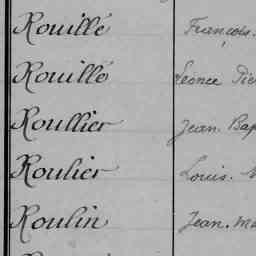 Rouillé François.
Rouillé Léonce
Roullier Jean
Roulier Louis.
Roulin Jean